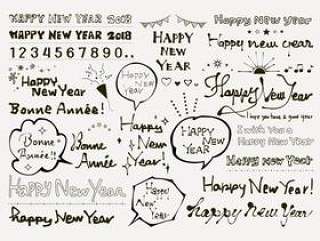 HAPPY NEW YEAR 2018
HAPPY NEW YEAR 2018
1234567890..
Happy
New Year
Bonne Année!
HAPPY
NEW
YEAR
HAPPY
NEW
YEAR
Happy New Year
Happy new year
Happy New Year
I hope you have a good year
I wish You a
Happy New Year
Happy New Year
Bonne
Année!!
Bonne
Année
Happy
New
Year
HAPPY
NEW
YEAR
Happy New Year
Happy New Year
Happy
New
Year
Happy New Year!
Happy New Year